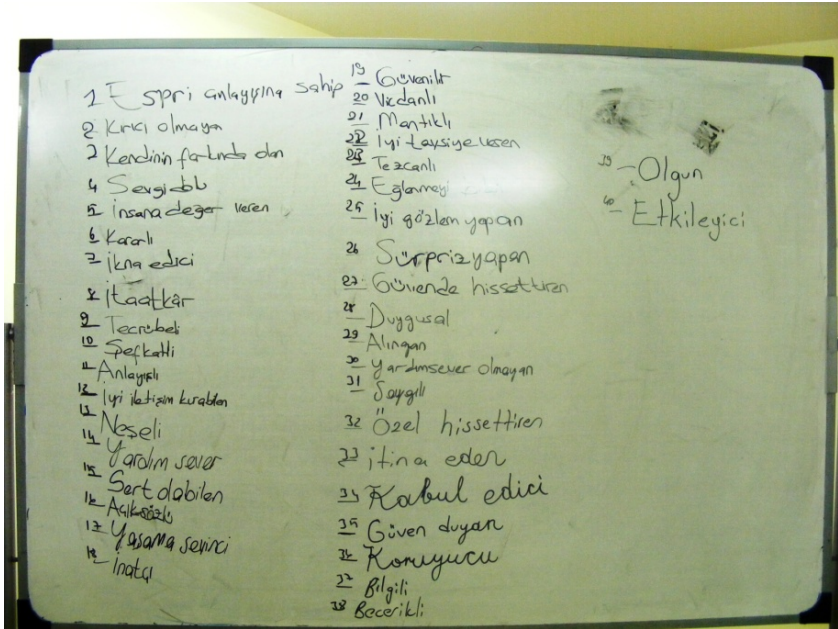 1 Espri anlayışına sahip
2 Kırıcı olmayan
3 Kendinin farkında olan
4 Sevgi dolu
5 insana değer veren
6 Kararlı
7 ikna edici
8 itaatkâr
9 Tecrübeli
10 Şefkatli
11 Anlayışlı
12 İyi iletişim kurabilen
13 Neşeli
14 Yardım sever
15 Sert olabilen
16 Açık sözlü
17 Yaşama sevinci
18 İnatçı
19 Güvenilir
20 Vicdanlı
21 Mantıklı
22 İyi tavsiye veren
23 Tezcanlı
24 Eğlenmeyi
25 İyi gözlem yapan
26 Sürpriz yapan
27 Güvende hissettiren
28 Duygusal
29 Alıngan
30 Yardımsever olmayan
31 Saygılı
32 Özel hissettiren
33 itina eden
34 Kabul edici
35 Güven duyan
36 Koruyucu
37 Bilgili
38 Becerikli
39 Olgun
40 Etkileyici